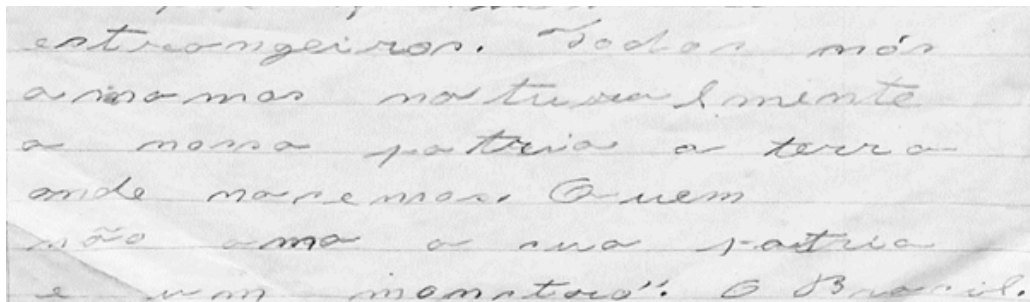 estrangeiros. Todos nós
amamos naturalmente
a nossa patria a terra
onde nasemos. Quem
não ama a sua patria
e um monstro". O Brasil.